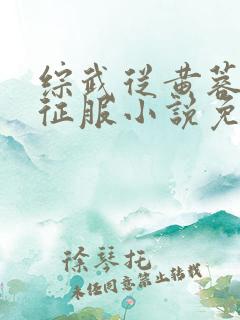 综武从黄蓉
征服小说免
徐琴托
未经同意禁止转载